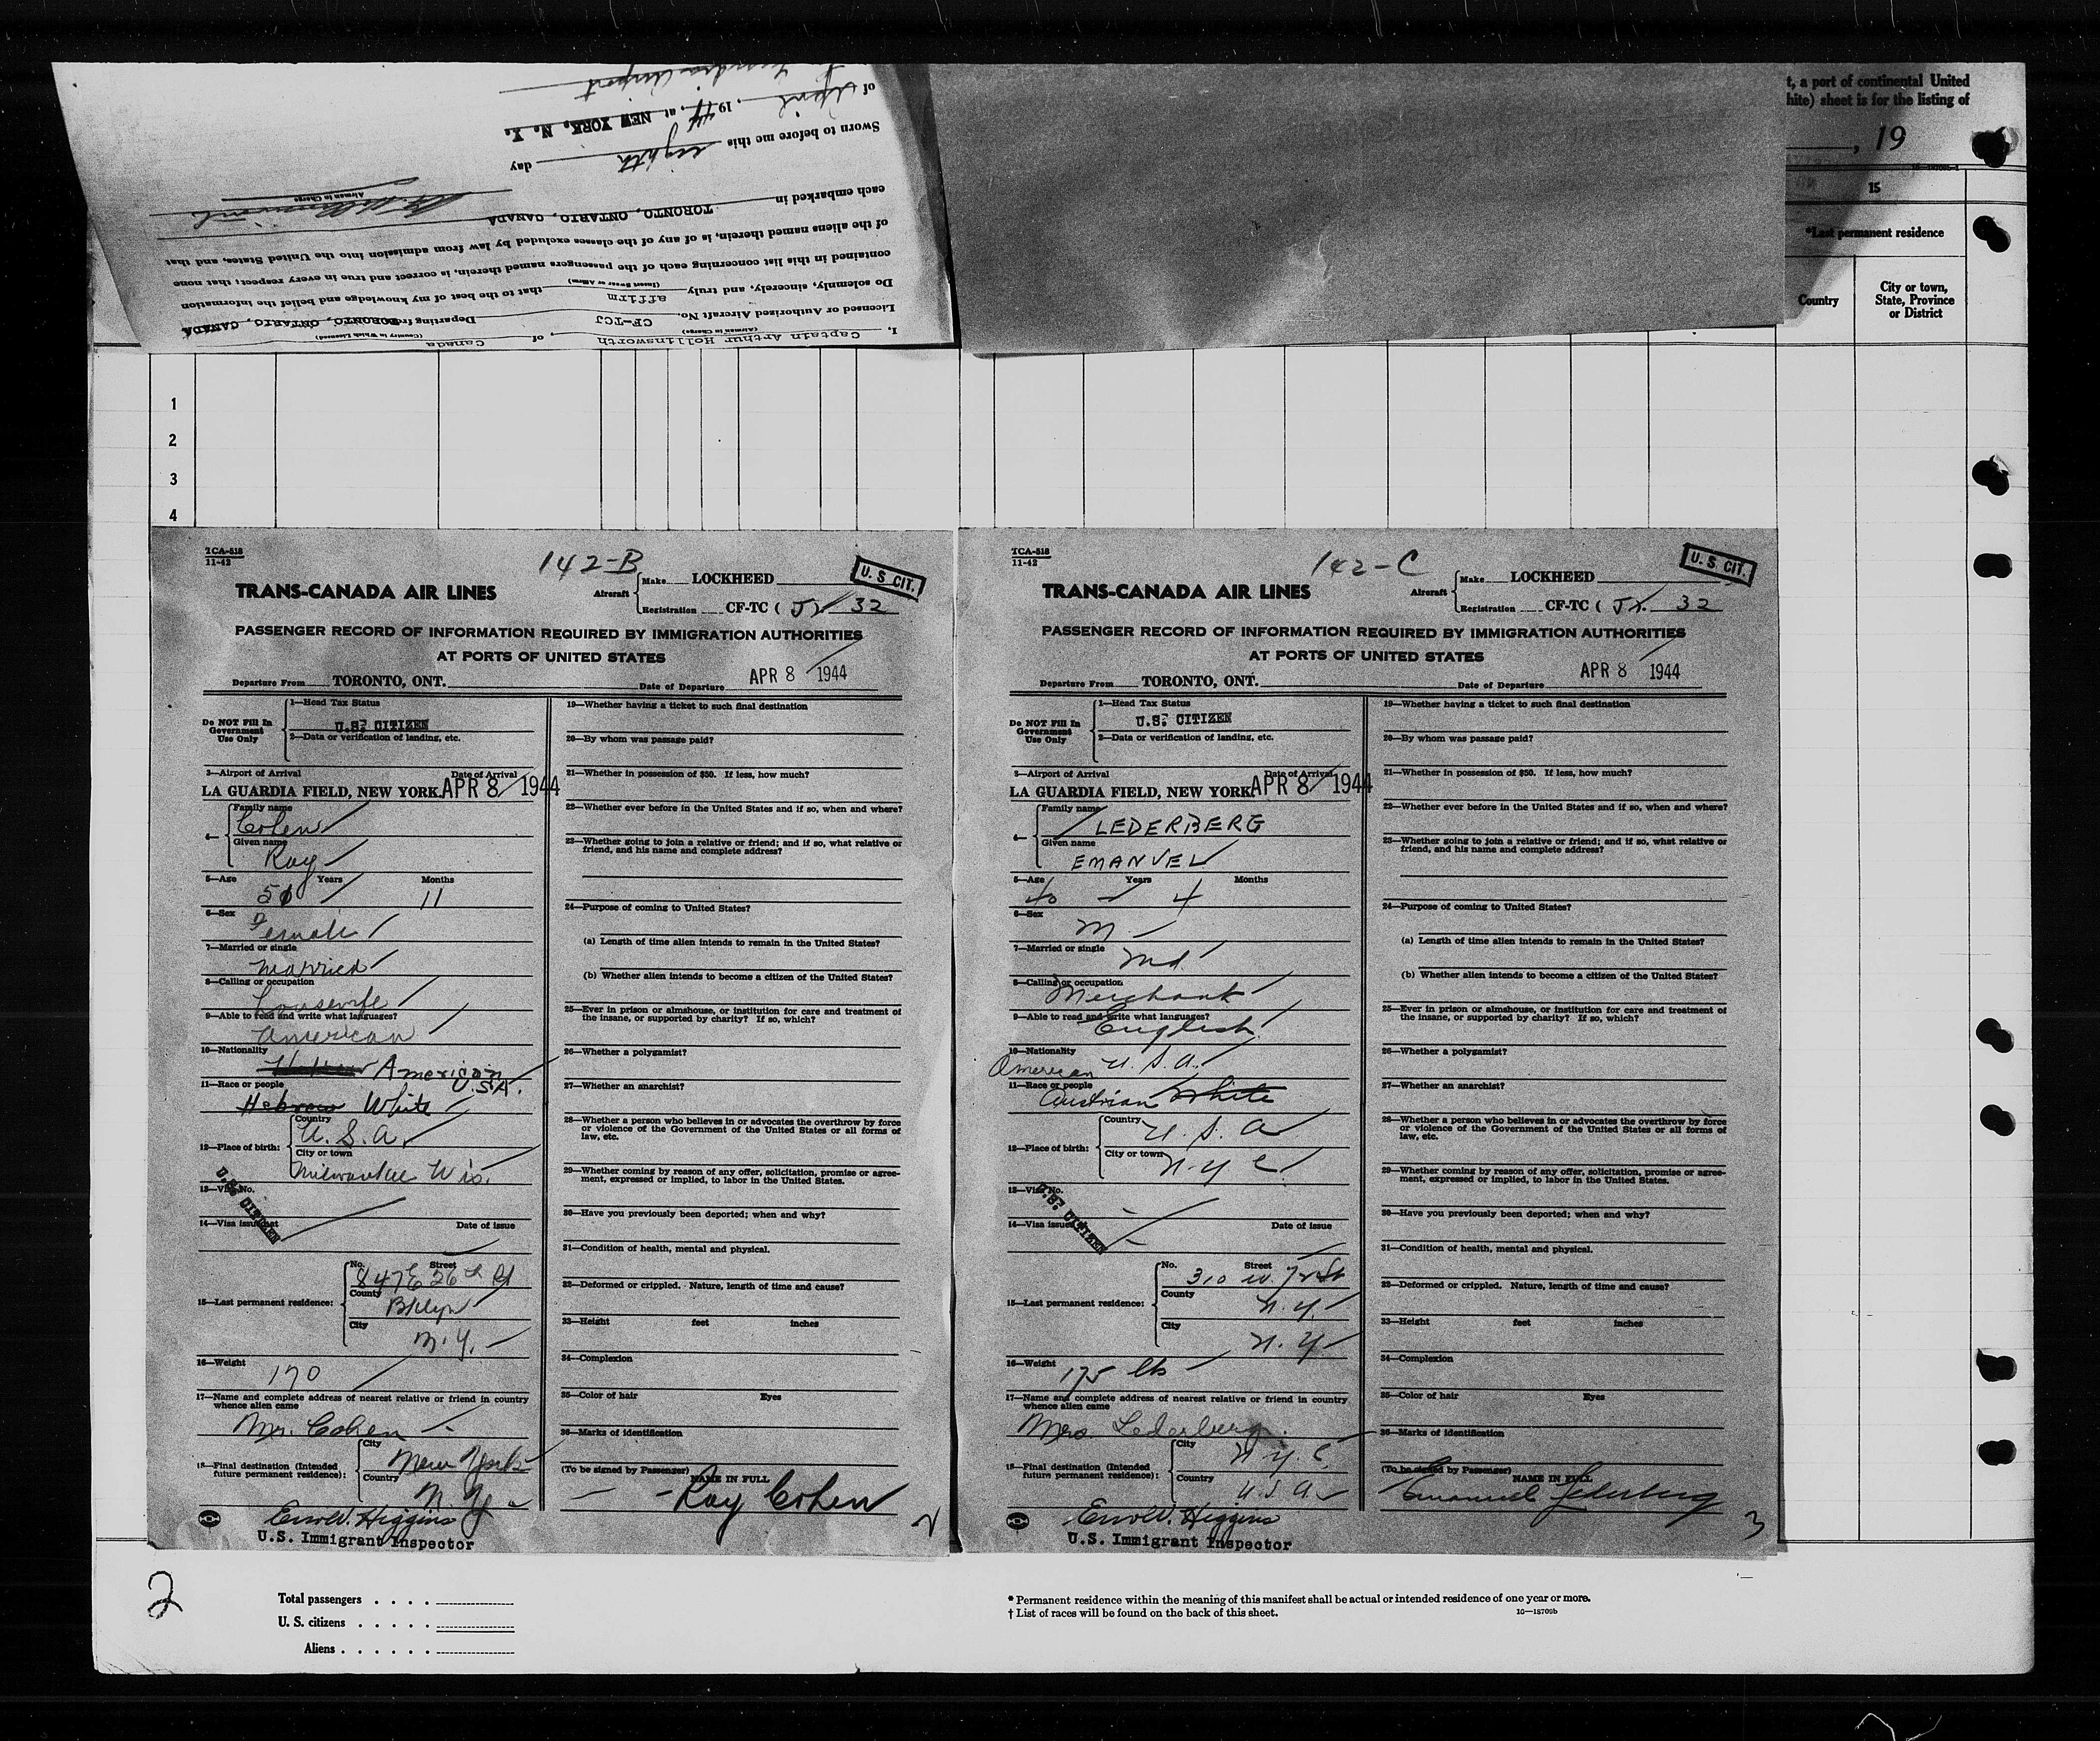 t, a port of continental United
hite) sheet is for the listing of
, 19
15
*Last permanent residence
Country
City or town,
State, Province
or District
I, Captain Arthur Hollinsworth, of Canada
(Airman in Charge) (Country in Which Licensed)
Licensed or Authorized Aircraft No. CF-TCJ Departing from TORONTO, ONTARIO, CANADA
Do solemnly, sincerely, and truly affirm that to the best of my knowledge and belief the information
(Insert Swear or Affirm)
contained in this list concerning each of the passengers named therein, is correct and true in every respect; that none
of the aliens named therein, is of any of the classes excluded by law from admission into the United States, and that
each embarked in TORONTO, ONTARIO, CANADA
Airman in Charge
Sworn to before me this eighth day
of April, 1944, at NEW YORK, N. Y.
1
2
3
4
TCA-518
11-42
142-B
U. S CIT.
TRANS-CANADA AIR LINES
Aircraft
Make LOCKHEED
Registration CF-TC ( J) 32
PASSENGER RECORD OF INFORMATION REQUIRED BY IMMIGRATION AUTHORITIES
AT PORTS OF UNITED STATES
Departure From TORONTO, ONT. Date of Departure APR 8 1944
Do NOT Fill In
Government
Use Only
1—Head Tax Status
U.S. CITIZEN
2—Data or verification of landing, etc.
3—Airport of Arrival Date of Arrival
LA GUARDIA FIELD, NEW YORK. APR 8 1944
4—
Family name
Cohen
Given name
Ray
5—Age Years Months
50 11
6—Sex
Female
7—Married or single
Married
8—Calling or occupation
housewife
9—Able to read and write what languages?
American
10—Nationality
American
U.S.A.
11—Race or people
Hebrew White
12—Place of birth:
Country
U. S. A.
City or town
Milwaukee Wis.
13—Visa No.
U.S. CITIZEN
14—Visa issued at Date of issue
15—Last permanent residence:
No. Street
847 E 26th St
County
Bklyn
City
N. Y.
16—Weight
170
17—Name and complete address of nearest relative or friend in country
whence alien came
Mr. Cohen
18—Final destination (Intended
future permanent residence):
City
New York
Country
N. Y.
Errol V. Higgins
U.S. Immigrant Inspector
19—Whether having a ticket to such final destination
20—By whom was passage paid?
21—Whether in possession of $50. If less, how much?
22—Whether ever before in the United States and if so, when and where?
23—Whether going to join a relative or friend; and if so, what relative or
friend, and his name and complete address?
24—Purpose of coming to United States?
(a) Length of time alien intends to remain in the United States?
(b) Whether alien intends to become a citizen of the United States?
25—Ever in prison or almshouse, or institution for care and treatment of
the insane, or supported by charity? If so, which?
26—Whether a polygamist?
27—Whether an anarchist?
28—Whether a person who believes in or advocates the overthrow by force
or violence of the Government of the United States or all forms of
law, etc.
29—Whether coming by reason of any offer, solicitation, promise or agree-
ment, expressed or implied, to labor in the United States.
30—Have you previously been deported; when and why?
31—Condition of health, mental and physical.
32—Deformed or crippled. Nature, length of time and cause?
33—Height feet inches
34—Complexion
35—Color of hair Eyes
36—Marks of identification
(To be signed by Passenger) NAME IN FULL
Ray Cohen
2
TCA-518
11-42
142-C
U. S. CIT.
TRANS-CANADA AIR LINES
Aircraft
Make LOCKHEED
Registration CF-TC ( J). 32
PASSENGER RECORD OF INFORMATION REQUIRED BY IMMIGRATION AUTHORITIES
AT PORTS OF UNITED STATES
Departure From TORONTO, ONT. Date of Departure APR 8 1944
Do NOT Fill In
Government
Use Only
1—Head Tax Status
U.S. CITIZEN
2—Data or verification of landing, etc.
3—Airport of Arrival Date of Arrival
LA GUARDIA FIELD, NEW YORK APR 8 1944
4—
Family name
LEDERBERG
Given name
EMANUEL
5—Age Years Months
40 4
6—Sex
M
7—Married or single
Md.
8—Calling or occupation
Merchant
9—Able to read and write what languages?
English
10—Nationality
American U. S. A.
11—Race or people
Austrian White
12—Place of birth:
Country
U. S. A
City or town
N. Y. C.
13—Visa No.
U.S. CITIZEN
14—Visa issued Date of issue
15—Last permanent residence:
No. Street
310 W. 72 St
County
N. Y.
City
N. Y.
16—Weight
175 lbs
17—Name and complete address of nearest relative or friend in country
whence alien came
Mrs. Lederberg.
18—Final destination (Intended
future permanent residence):
City
N. Y. C.
Country
U. S. A.
Errol V. Higgins
U.S. Immigrant Inspector
19—Whether having a ticket to such final destination
20—By whom was passage paid?
21—Whether in possession of $50. If less, how much?
22—Whether ever before in the United States and if so, when and where?
23—Whether going to join a relative or friend; and if so, what relative or
friend, and his name and complete address?
24—Purpose of coming to United States?
(a) Length of time alien intends to remain in the United States?
(b) Whether alien intends to become a citizen of the United States?
25—Ever in prison or almshouse, or institution for care and treatment of
the insane, or supported by charity? If so, which?
26—Whether a polygamist?
27—Whether an anarchist?
28—Whether a person who believes in or advocates the overthrow by force
or violence of the Government of the United States or all forms of
law, etc.
29—Whether coming by reason of any offer, solicitation, promise or agree-
ment, expressed or implied, to labor in the United States.
30—Have you previously been deported; when and why?
31—Condition of health, mental and physical.
32—Deformed or crippled. Nature, length of time and cause?
33—Height feet inches
34—Complexion
35—Color of hair Eyes
36—Marks of identification
(To be signed by Passenger) NAME IN FULL
Emanuel Lederberg
3
2
Total passengers . . . .
U. S. citizens . . . . .
Aliens . . . . . .
* Permanent residence within the meaning of this manifest shall be actual or intended residence of one year or more.
† List of races will be found on the back of this sheet. 16—18709b